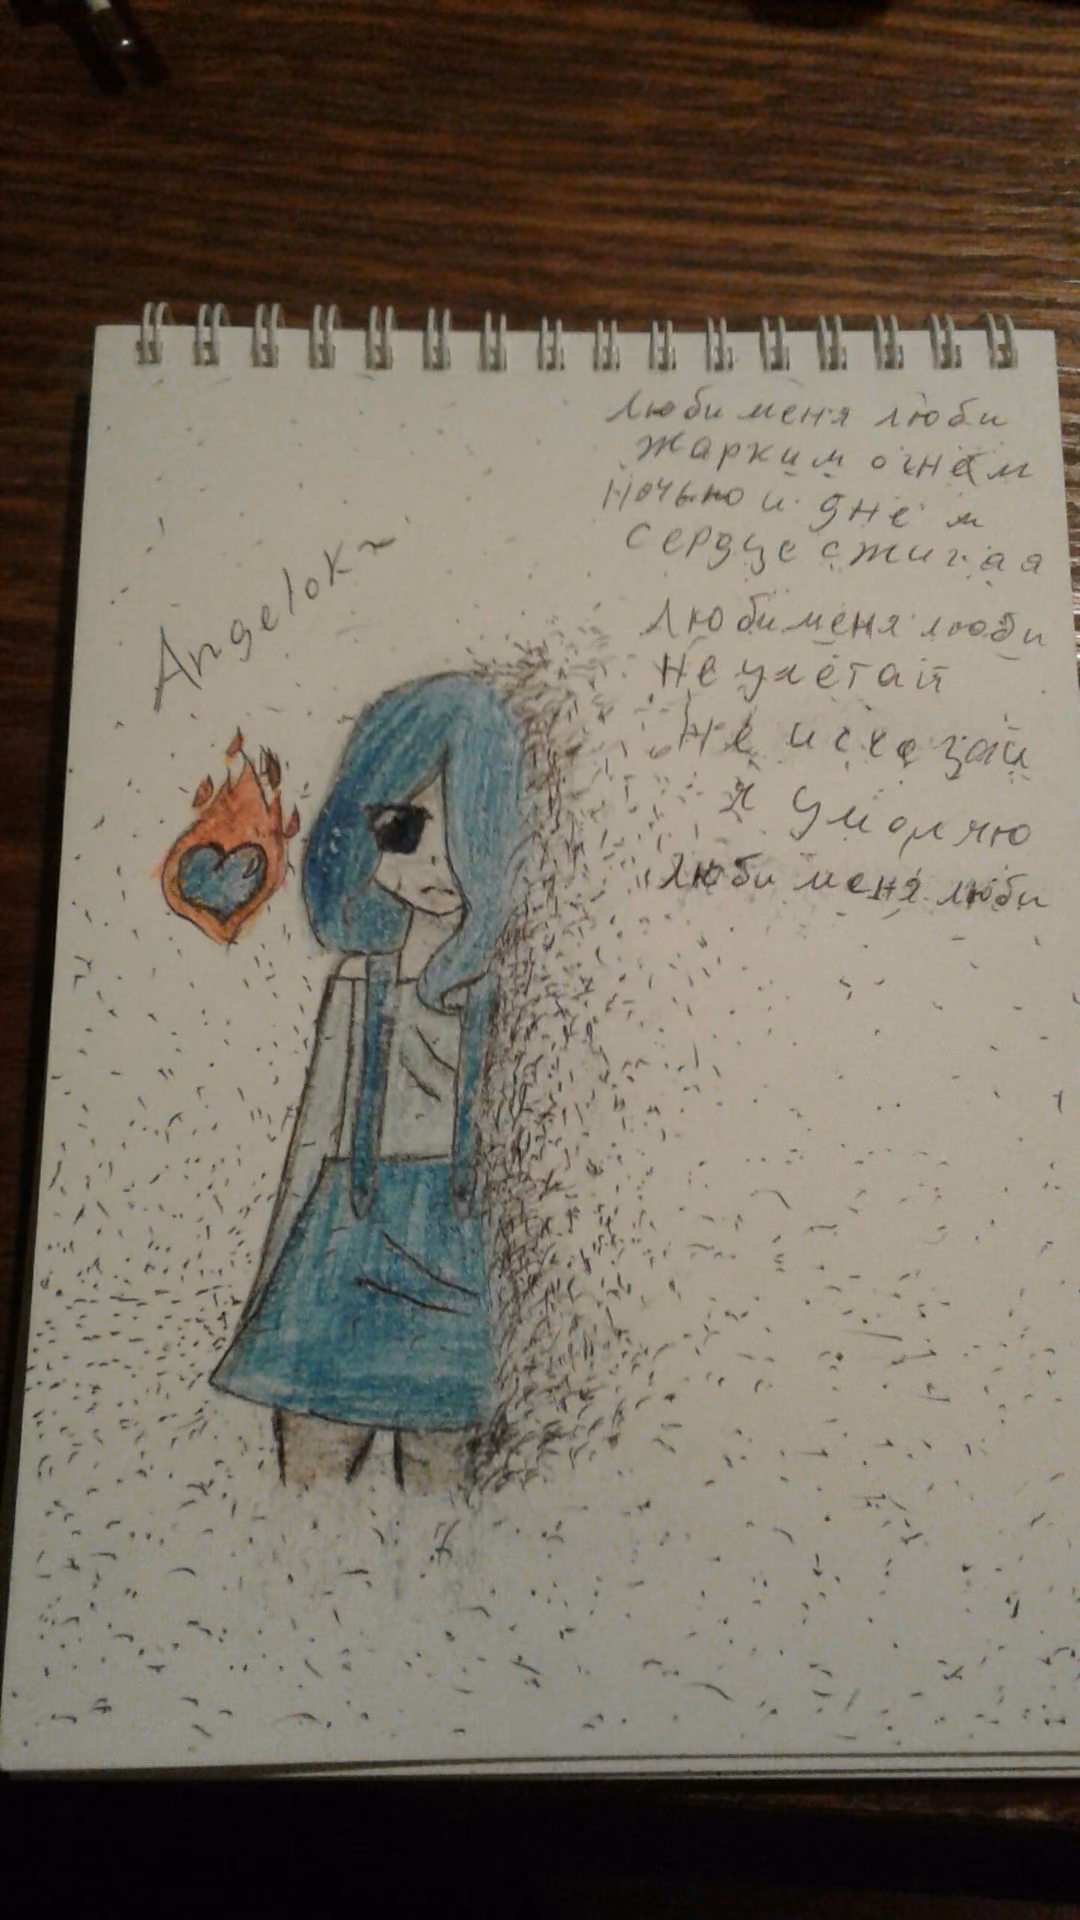 Angeloka
Люби меня люби
жарким огнём
Ночью и днем
Сердце сжигая
Люби меня люби
Не улетай
Не исчезай
Я умоляю
Люби меня люби